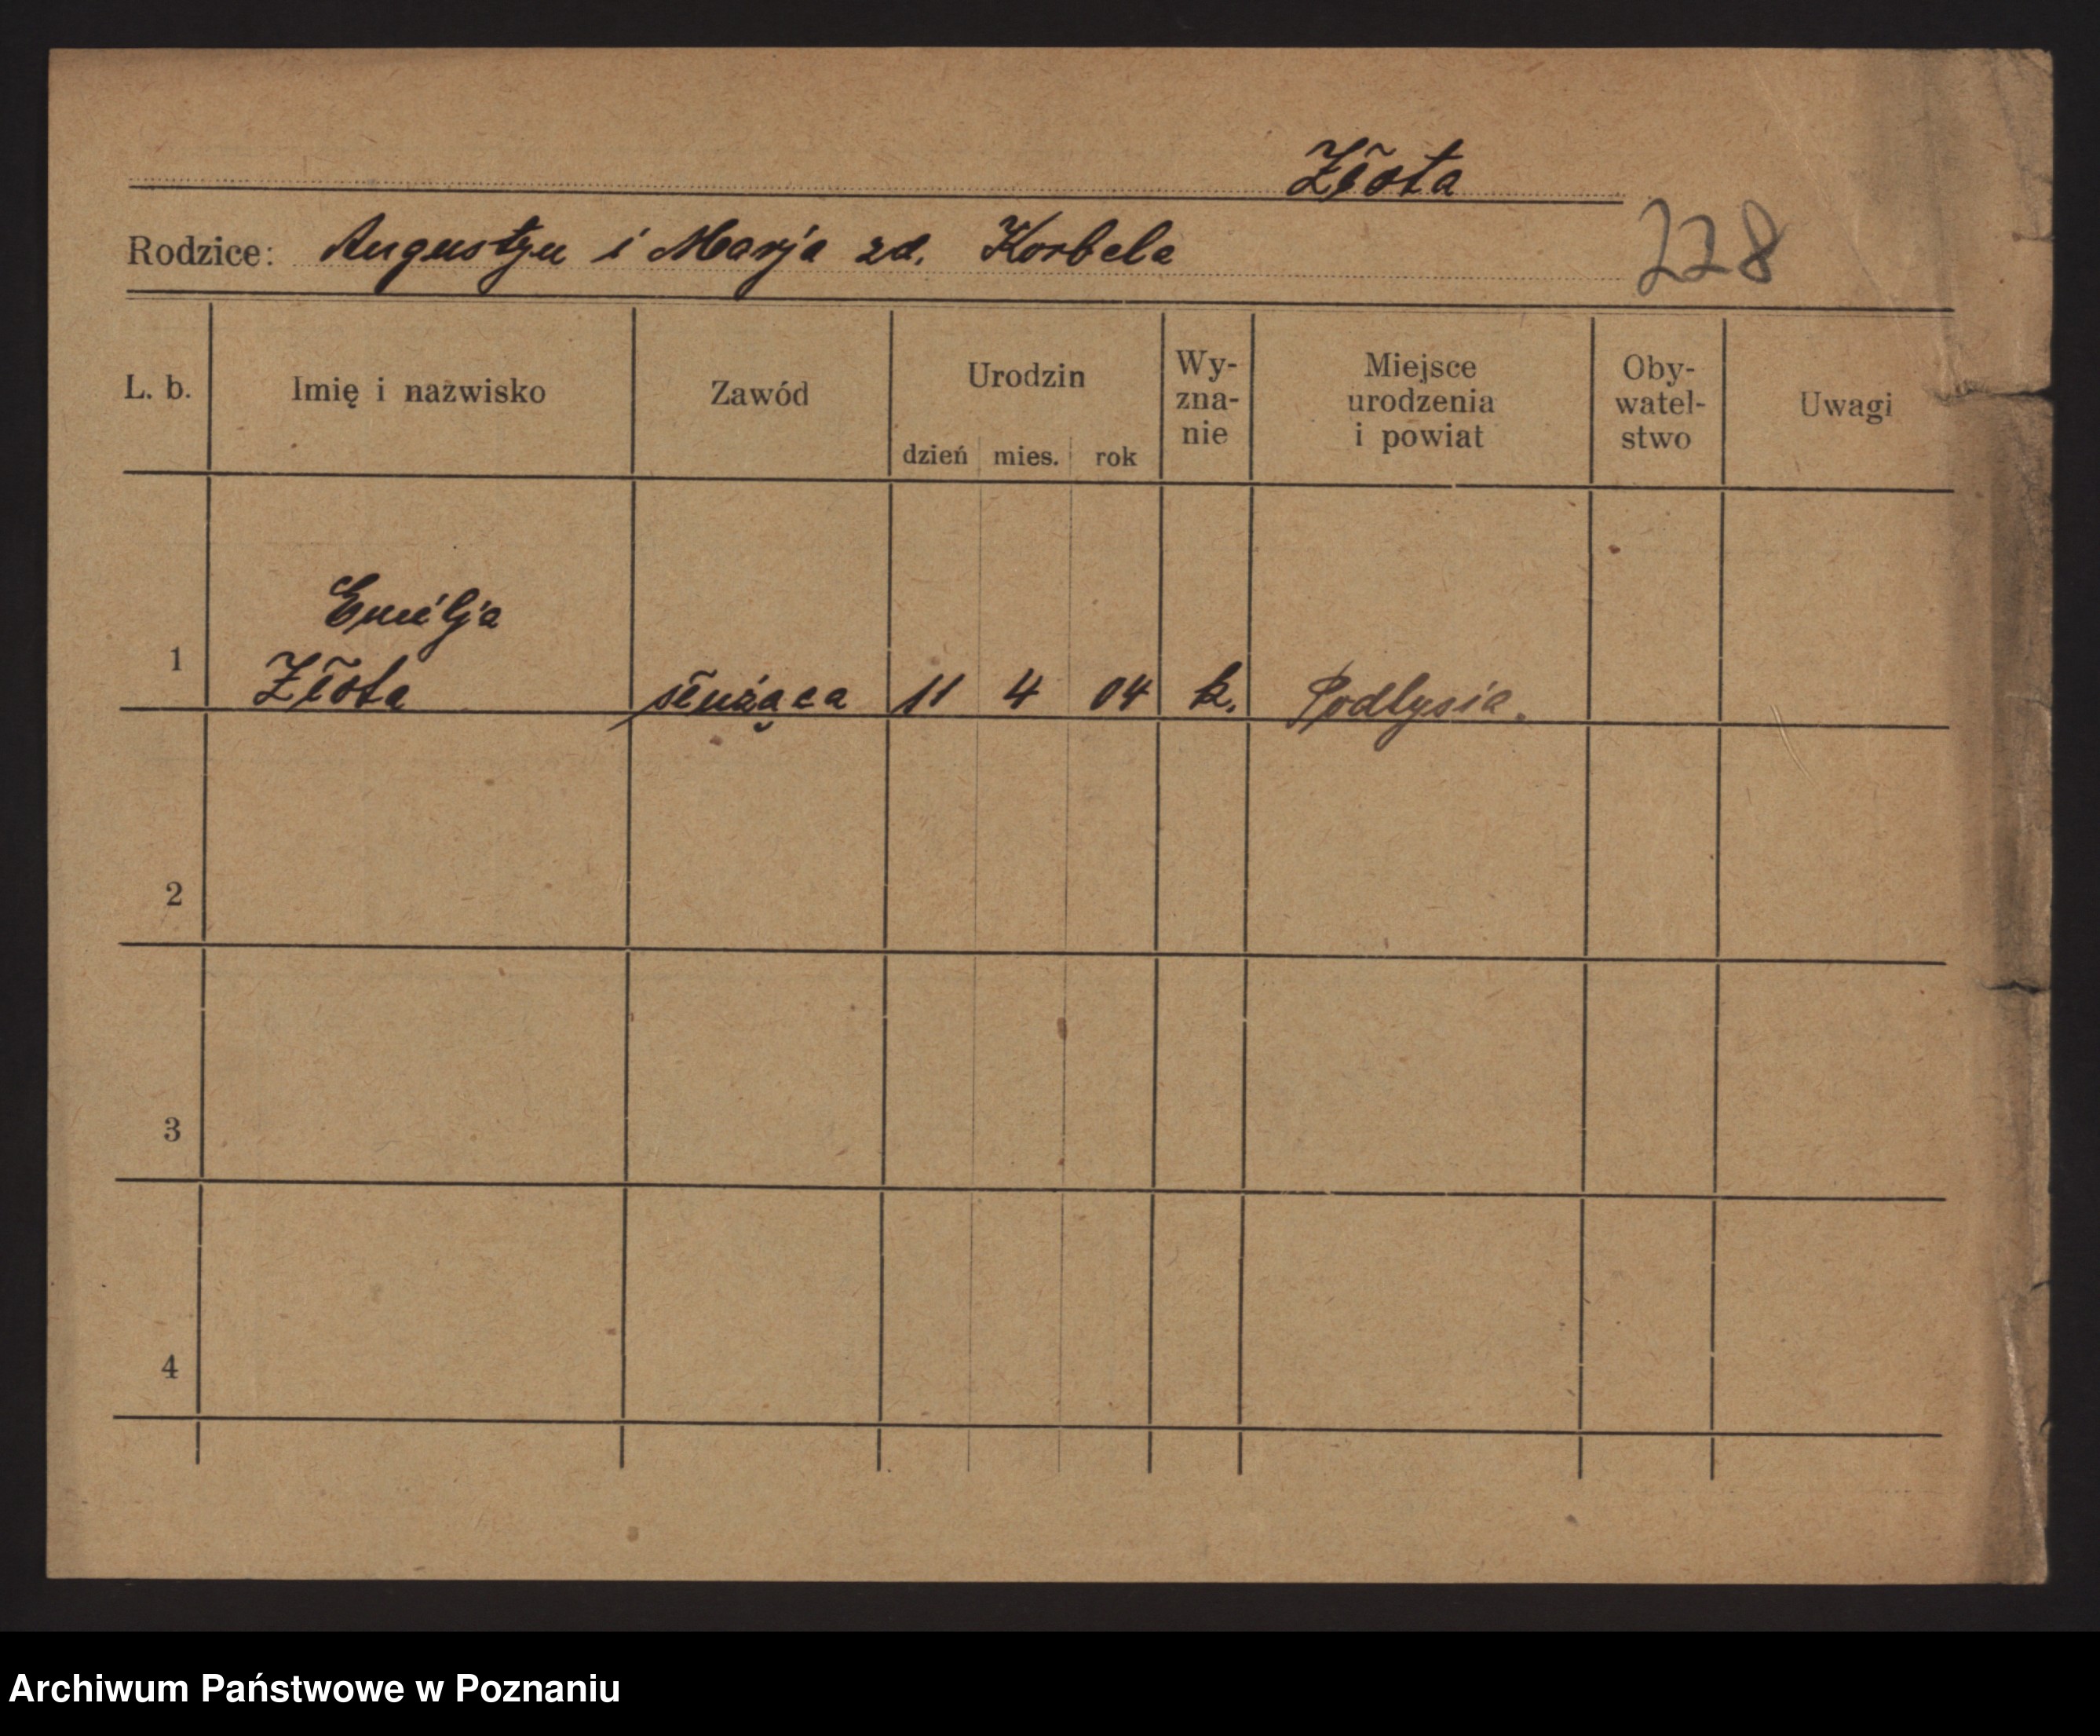 Złota
Rodzice: Augustyn i Marja zd. Korbela
228
L. b. Imię i nazwisko Zawód Urodzin dzień mies. rok Wy-zna-nie Miejsce urodzenia i powiat Oby-watel-stwo Uwagi
Emilja
1 Złota służąca 11 4 04 k. Podlysia.
2
3
4
Archiwum Państwowe w Poznaniu